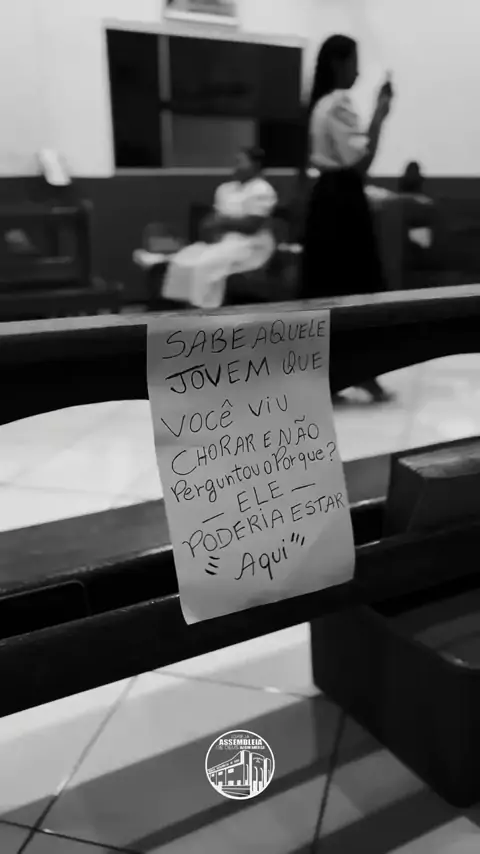 SABE AQUELE
JOVEM QUE
VOCÊ VIU
CHORAR E NÃO
Perguntou o Porque?
— ELE —
PODERIA ESTAR
"Aqui"
ASSEMBLEIA